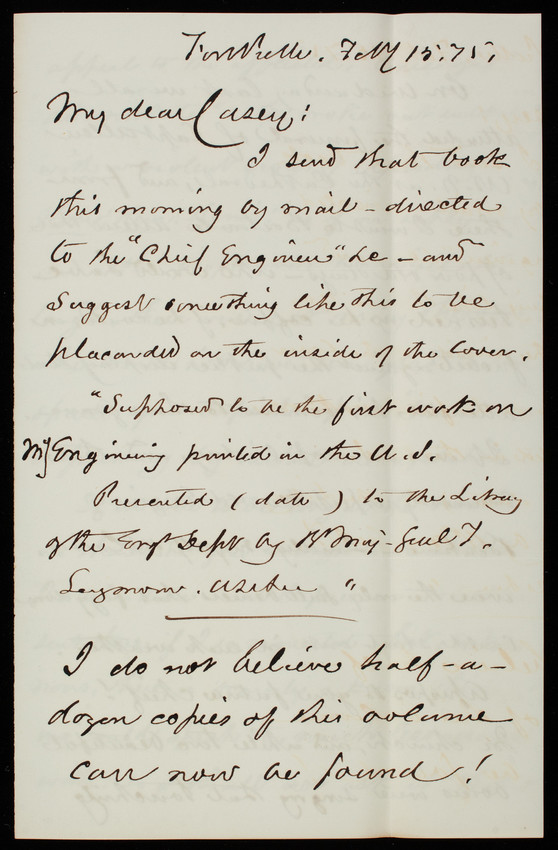 Fort Preble. Feby 15. 75.
My dear Casey:
I send that book
this morning by mail - directed
to the "Chief Engineer" &c - and
suggest something like this to be
placarded on the inside of the cover.
"Supposed to be the first work on
My Engineering printed in the U.S.
Presented (date) to the Library
of the Engr Dept by Bt Maj-Genl T.
Seymour. USArmy"
I do not believe half-a-
dozen copies of this volume
can now be found!